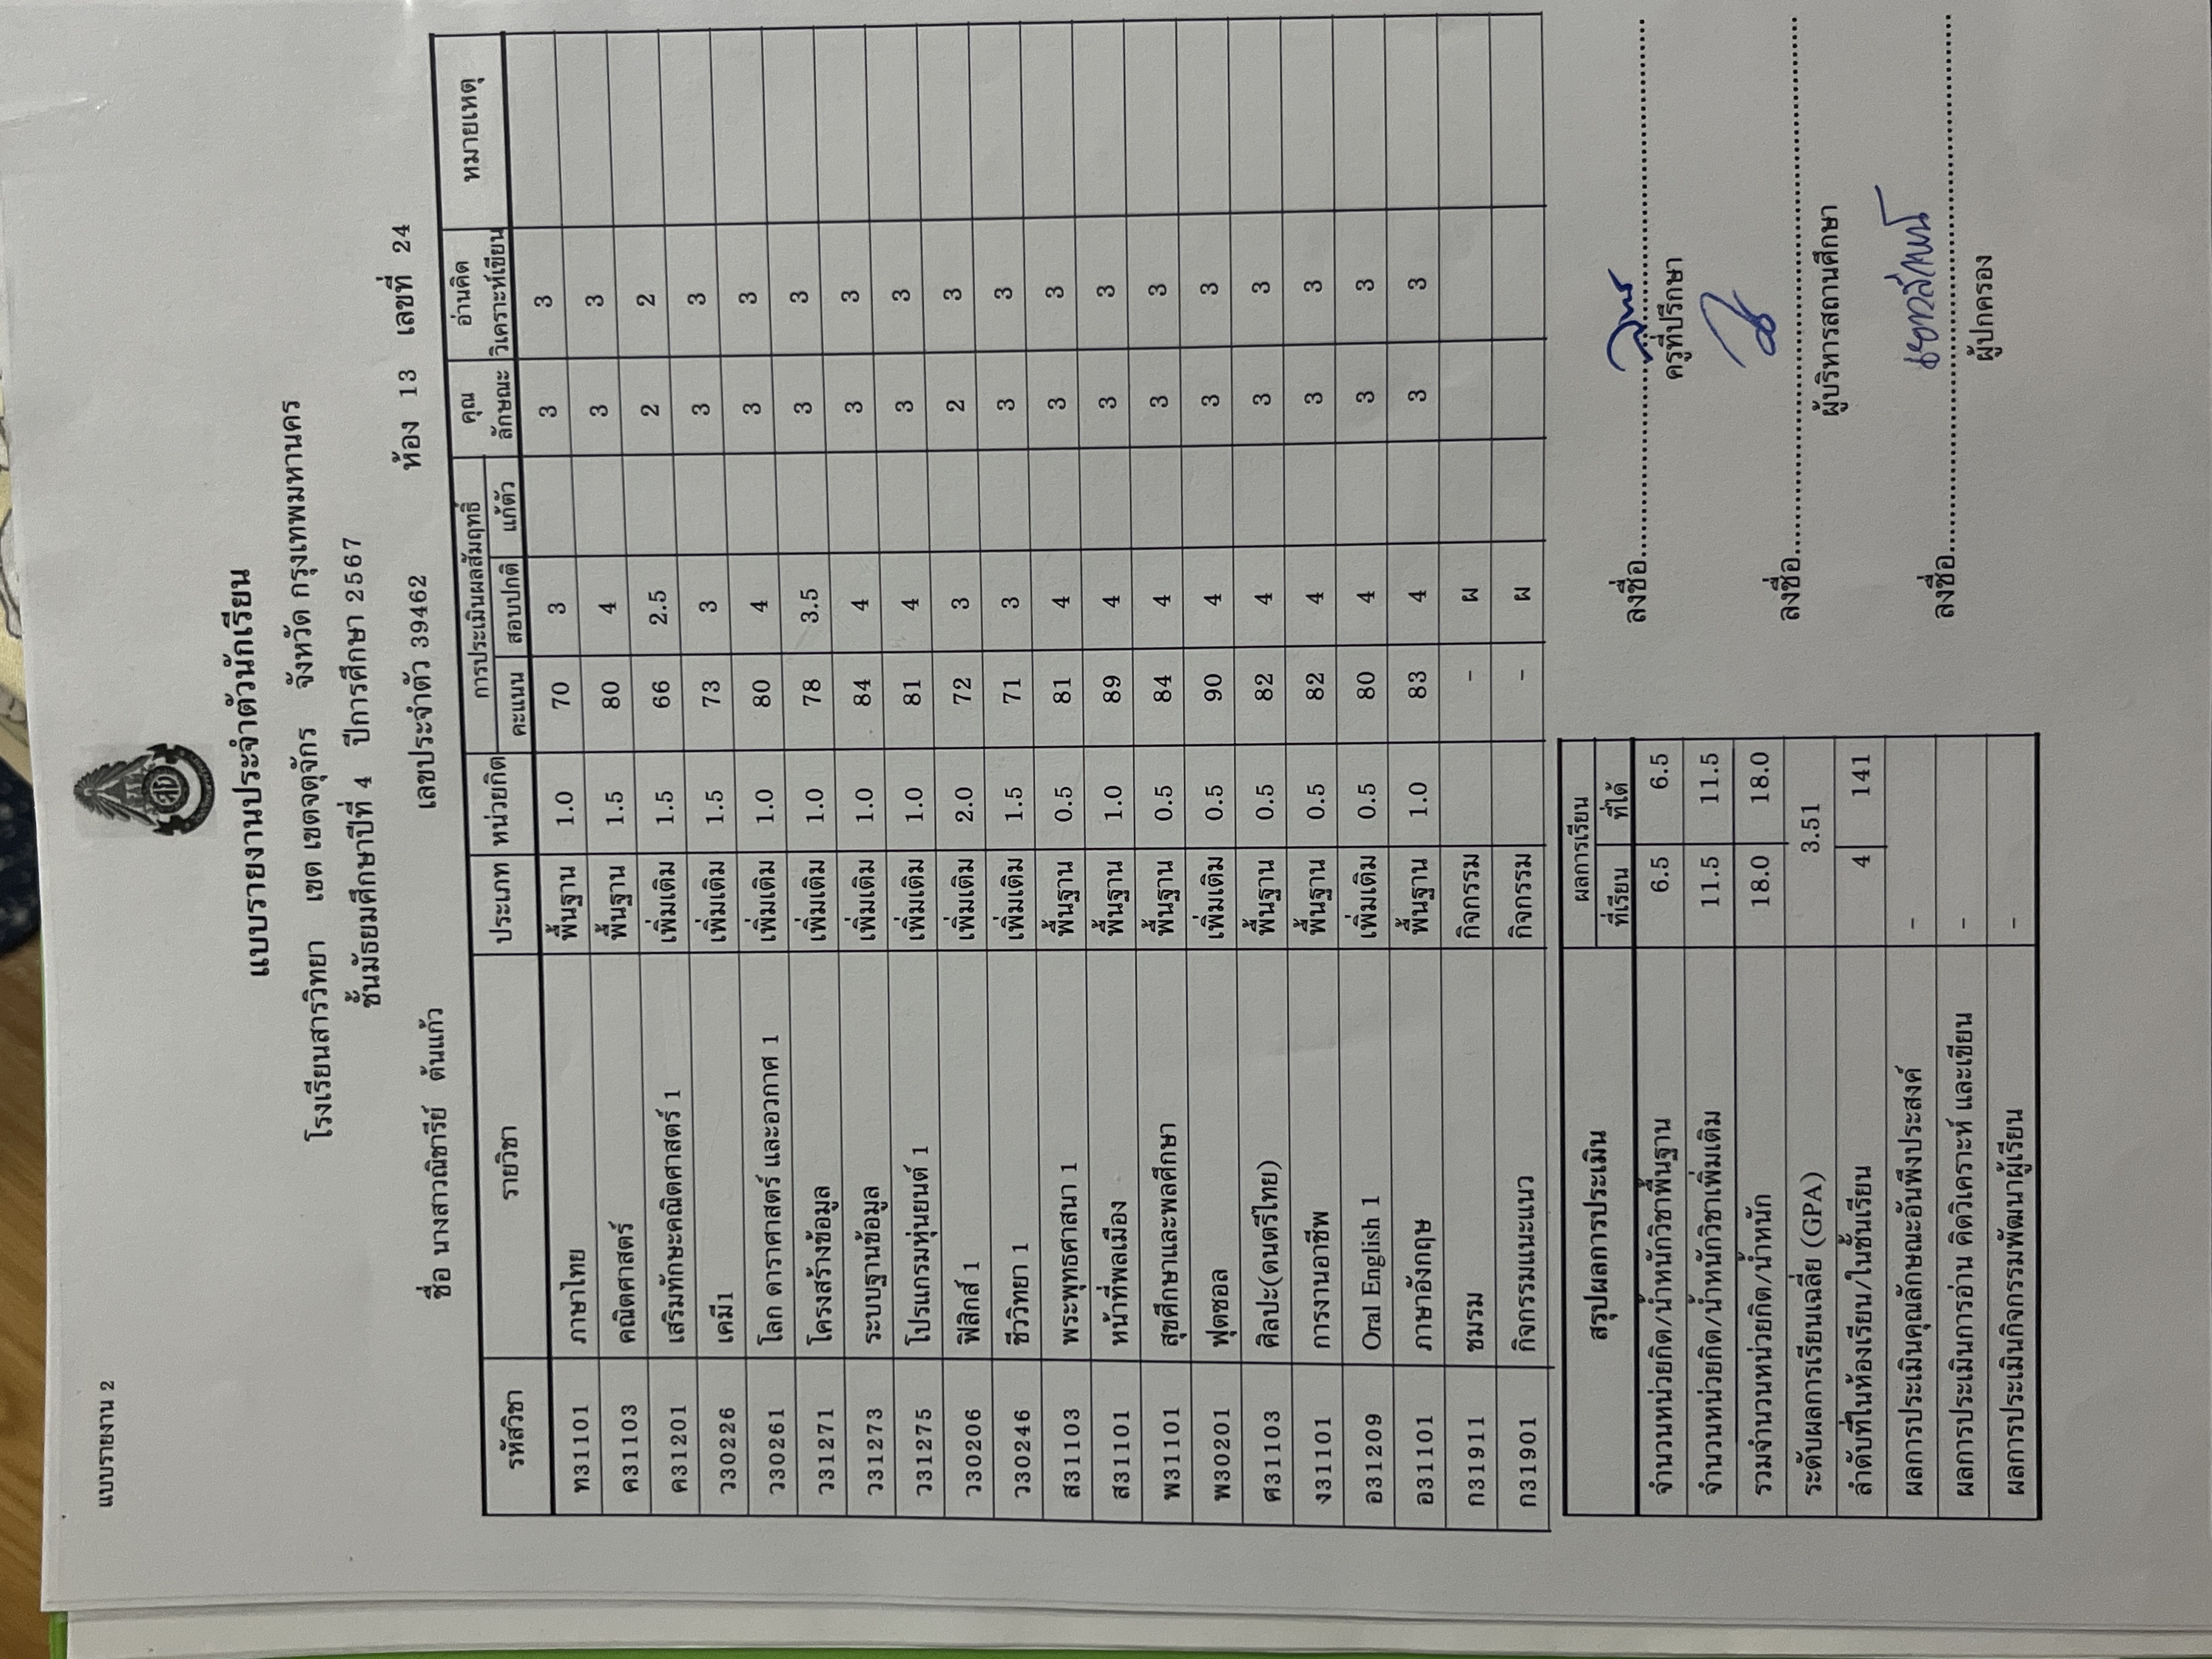 แบบรายงาน 2
แบบรายงานประจำตัวนักเรียน
โรงเรียนสารวิทยา เขต เขตจตุจักร จังหวัด กรุงเทพมหานคร
ชั้นมัธยมศึกษาปีที่ 4 ปีการศึกษา 2567
ชื่อ นางสาวณิชารีย์ ต้นแก้ว เลขประจำตัว 39462 ห้อง 13 เลขที่ 24
รหัสวิชา รายวิชา ประเภท หน่วยกิต การประเมินผลสัมฤทธิ์ คุณ อ่านคิด หมายเหตุ
คะแนน สอบปกติ แก้ตัว ลักษณะ วิเคราะห์เขียน
ท31101 ภาษาไทย พื้นฐาน 1.0 70 3 3 3
ค31103 คณิตศาสตร์ พื้นฐาน 1.5 80 4 3 3
ค31201 เสริมทักษะคณิตศาสตร์ 1 เพิ่มเติม 1.5 66 2.5 2 2
ว30226 เคมี1 เพิ่มเติม 1.5 73 3 3 3
ว30261 โลก ดาราศาสตร์ และอวกาศ 1 เพิ่มเติม 1.0 80 4 3 3
ว31271 โครงสร้างข้อมูล เพิ่มเติม 1.0 78 3.5 3 3
ว31273 ระบบฐานข้อมูล เพิ่มเติม 1.0 84 4 3 3
ว31275 โปรแกรมหุ่นยนต์ 1 เพิ่มเติม 1.0 81 4 3 3
ว30206 ฟิสิกส์ 1 เพิ่มเติม 2.0 72 3 2 3
ว30246 ชีววิทยา 1 เพิ่มเติม 1.5 71 3 3 3
ส31103 พระพุทธศาสนา 1 พื้นฐาน 0.5 81 4 3 3
ส31101 หน้าที่พลเมือง พื้นฐาน 1.0 89 4 3 3
พ31101 สุขศึกษาและพลศึกษา พื้นฐาน 0.5 84 4 3 3
พ30201 ฟุตซอล เพิ่มเติม 0.5 90 4 3 3
ศ31103 ศิลปะ(ดนตรีไทย) พื้นฐาน 0.5 82 4 3 3
ง31101 การงานอาชีพ พื้นฐาน 0.5 82 4 3 3
อ31209 Oral English 1 เพิ่มเติม 0.5 80 4 3 3
อ31101 ภาษาอังกฤษ พื้นฐาน 1.0 83 4 3 3
ก31911 ชมรม กิจกรรม - ผ
ก31901 กิจกรรมแนะแนว กิจกรรม - ผ
สรุปผลการประเมิน ผลการเรียน
ที่เรียน ที่ได้
จำนวนหน่วยกิต/น้ำหนักวิชาพื้นฐาน 6.5 6.5
จำนวนหน่วยกิต/น้ำหนักวิชาเพิ่มเติม 11.5 11.5
รวมจำนวนหน่วยกิต/น้ำหนัก 18.0 18.0
ระดับผลการเรียนเฉลี่ย (GPA) 3.51
ลำดับที่ในห้องเรียน/ในชั้นเรียน 4 141
ผลการประเมินคุณลักษณะอันพึงประสงค์ -
ผลการประเมินการอ่าน คิดวิเคราะห์ และเขียน -
ผลการประเมินกิจกรรมพัฒนาผู้เรียน -
ลงชื่อ
ครูที่ปรึกษา
ลงชื่อ
ผู้บริหารสถานศึกษา
ลงชื่อ
ผู้ปกครอง